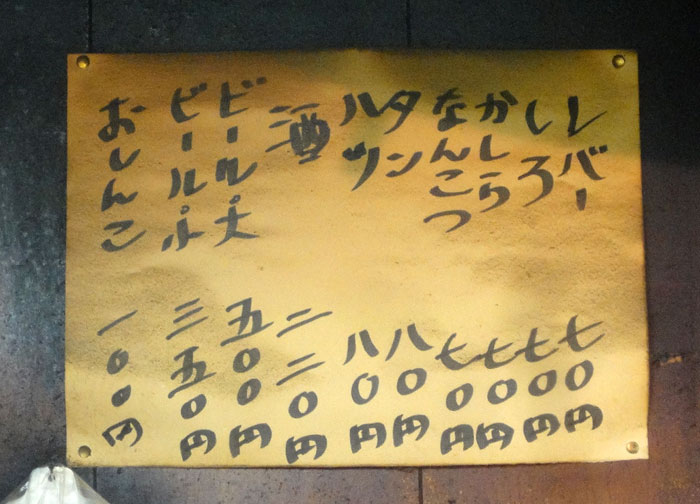 レバー 七〇円
しろ 七〇円
かしら 七〇円
なんこつ 七〇円
タン 八〇円
ハツ 八〇円
酒 二二〇円
ビール大 五〇〇円
ビール小 三五〇円
おしんこ 一〇〇円